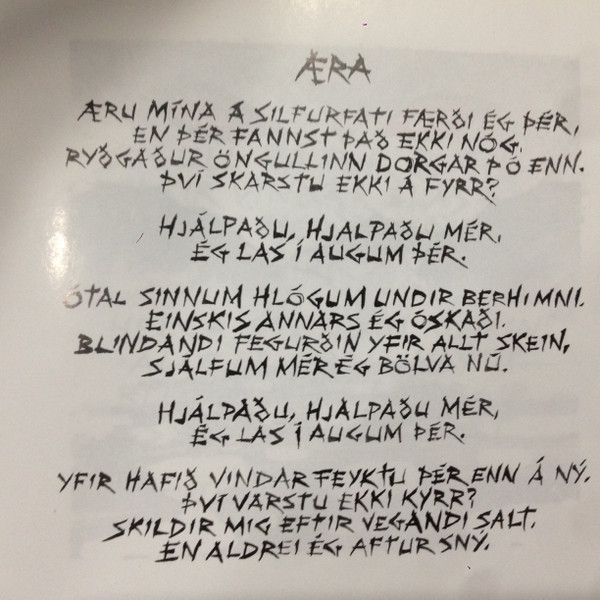 ÆRA
ÆRU MÍNA Á SILFURFATI FÆRÐI ÉG ÞÉR,
EN ÞÉR FANNST ÞAÐ EKKI NÓG.
RYÐGAÐUR ÖNGULLINN DORGAR ÞÓ ENN.
ÞVÍ SKARSTU EKKI Á FYRR?
HJÁLPAÐU, HJALPAÐU MÉR,
ÉG LAS Í AUGUM ÞÉR.
ÓTAL SINNUM HLÓGUM UNDIR BERHIMNI.
EINSKIS ANNARS ÉG ÓSKAÐI.
BLINDANDI FEGURÐIN YFIR ALLT SKEIN,
SJÁLFUM MÉR ÉG BÖLVA NÚ.
HJÁLPAÐU, HJALPAÐU MÉR,
ÉG LAS Í AUGUM ÞÉR.
YFIR HAFIÐ VINDAR FEYKTU ÞÉR ENN Á NÝ.
ÞVÍ VARSTU EKKI KYRR?
SKILDIR MIG EFTIR VEGANDI SALT.
EN ALDREI ÉG AFTUR SNÝ.